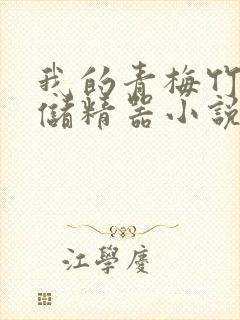 我的青梅竹
儲精器小説
江學慶